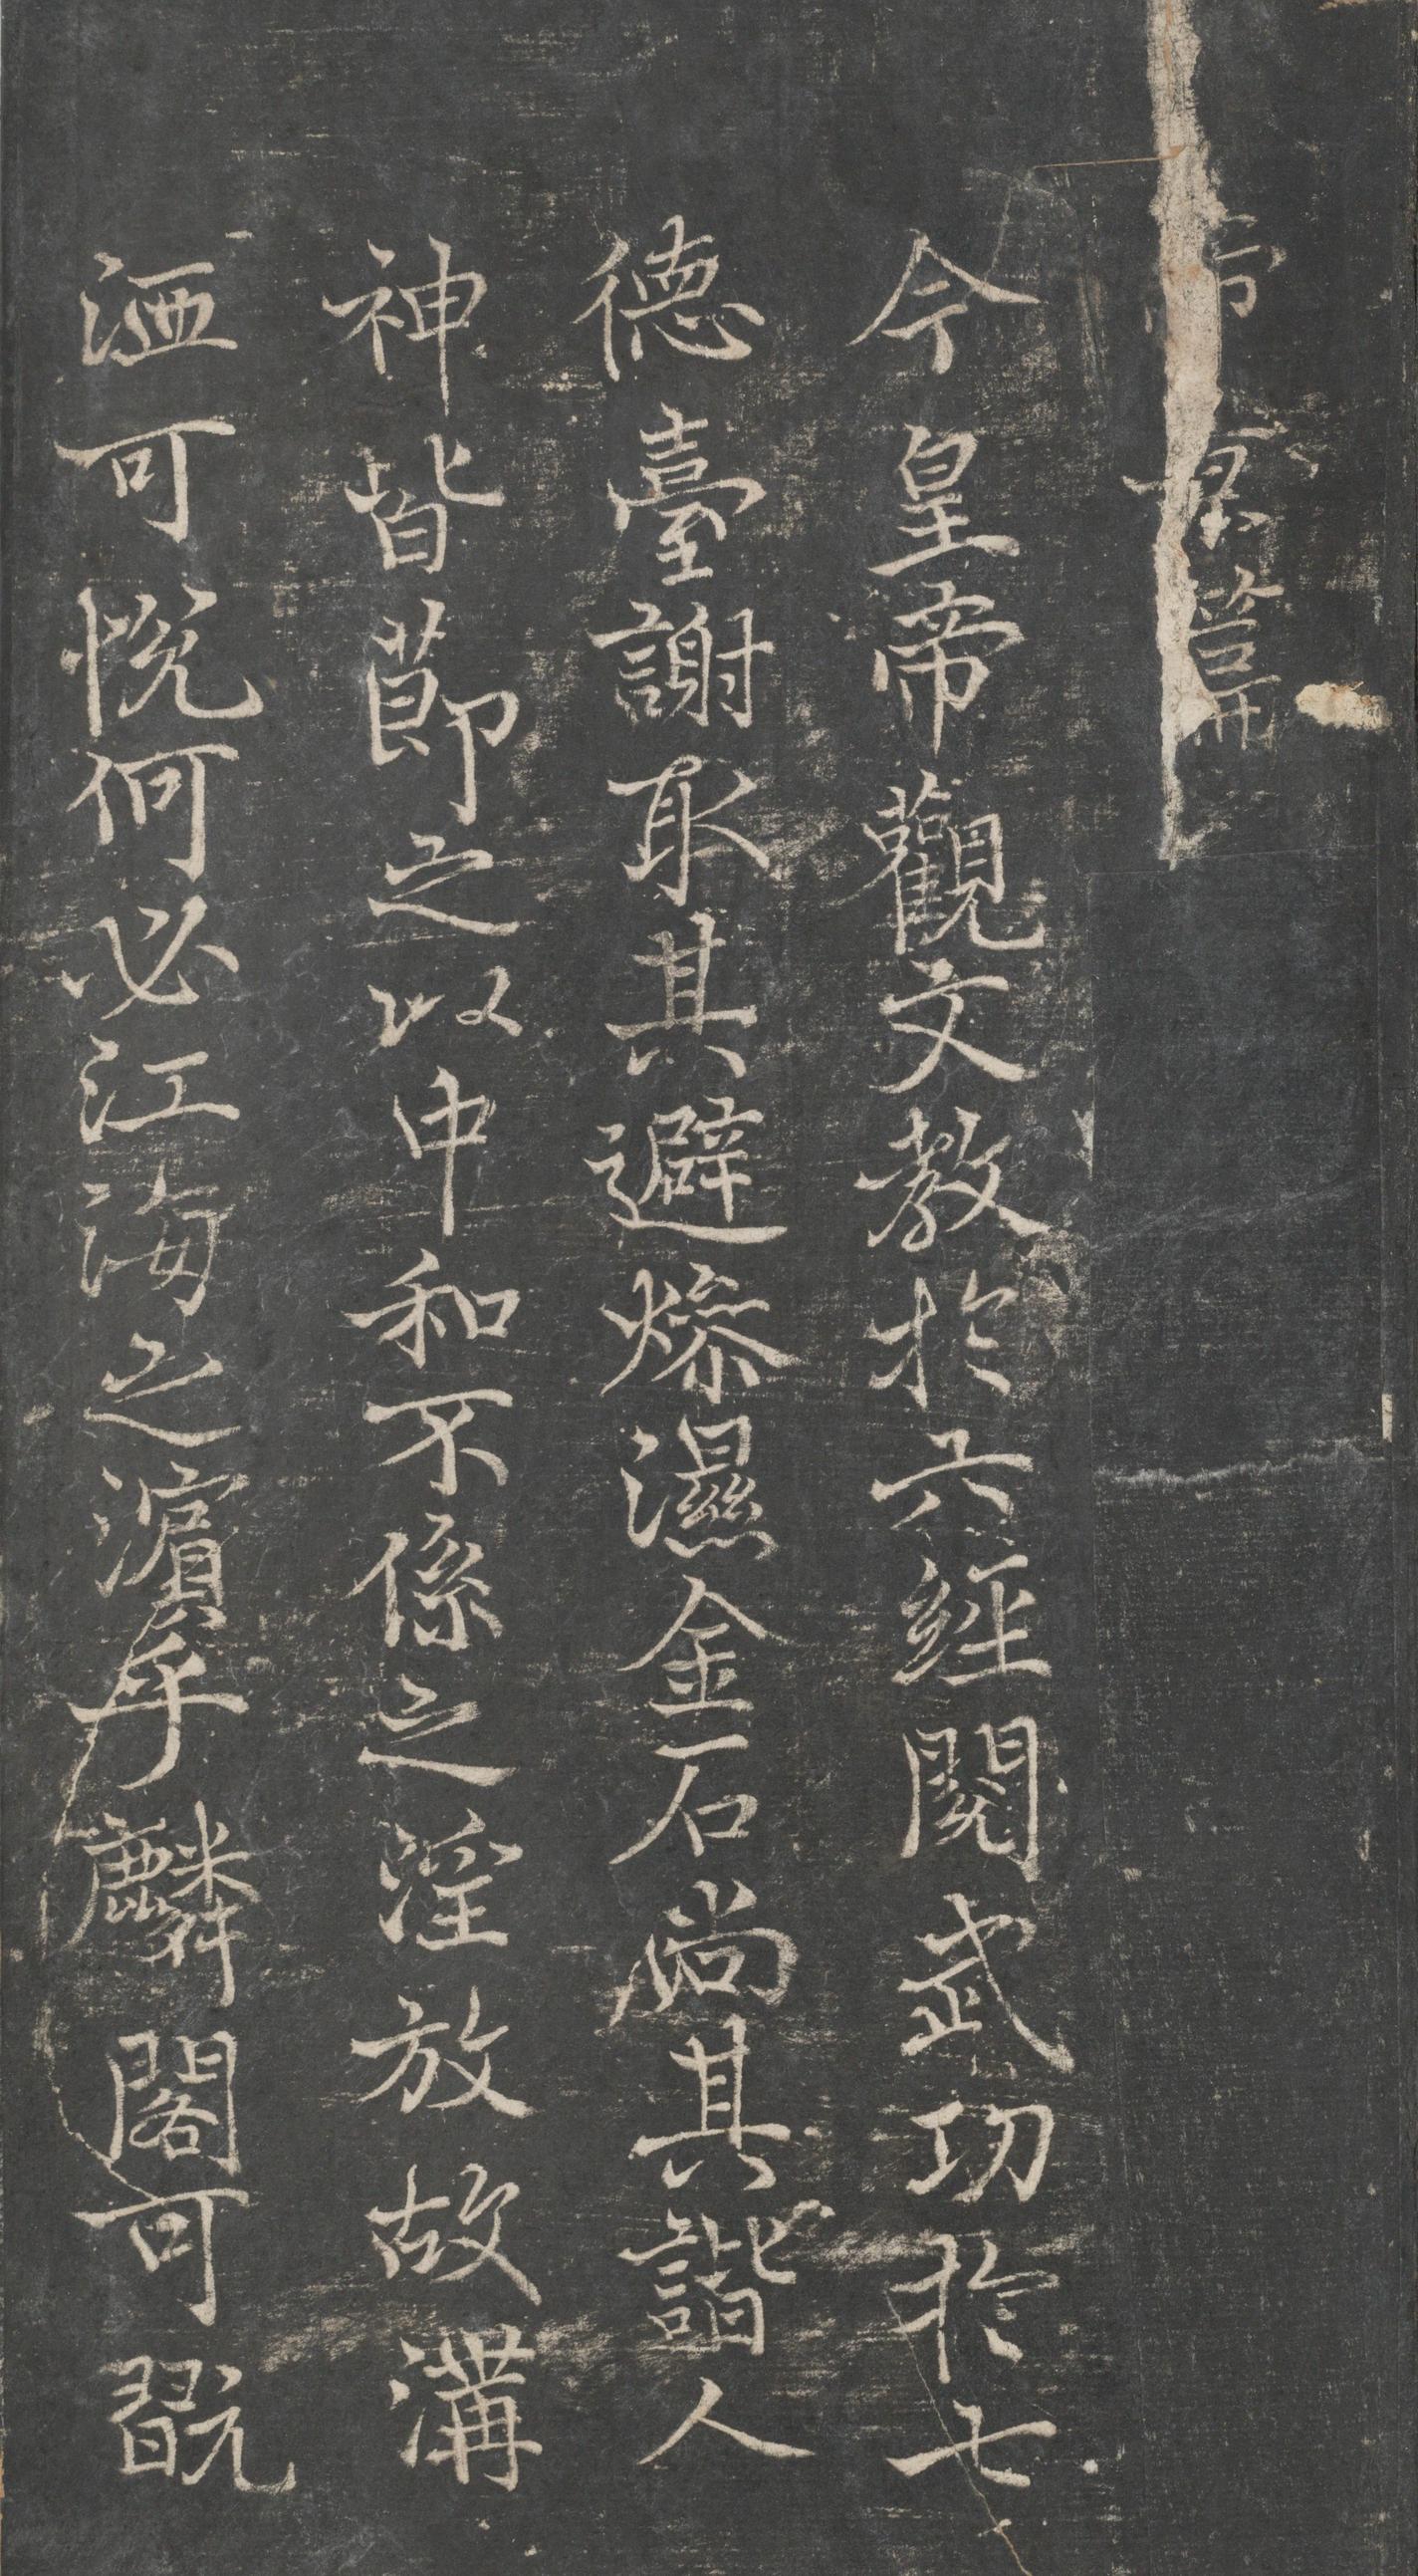 帝京篇
今皇帝觀文教於六經閱武功於七
德臺謝取其避燥濕金石尚其諧人
神皆節之以中和不係之淫放故溝
洫可悅何必江海之濱乎麟閣可翫